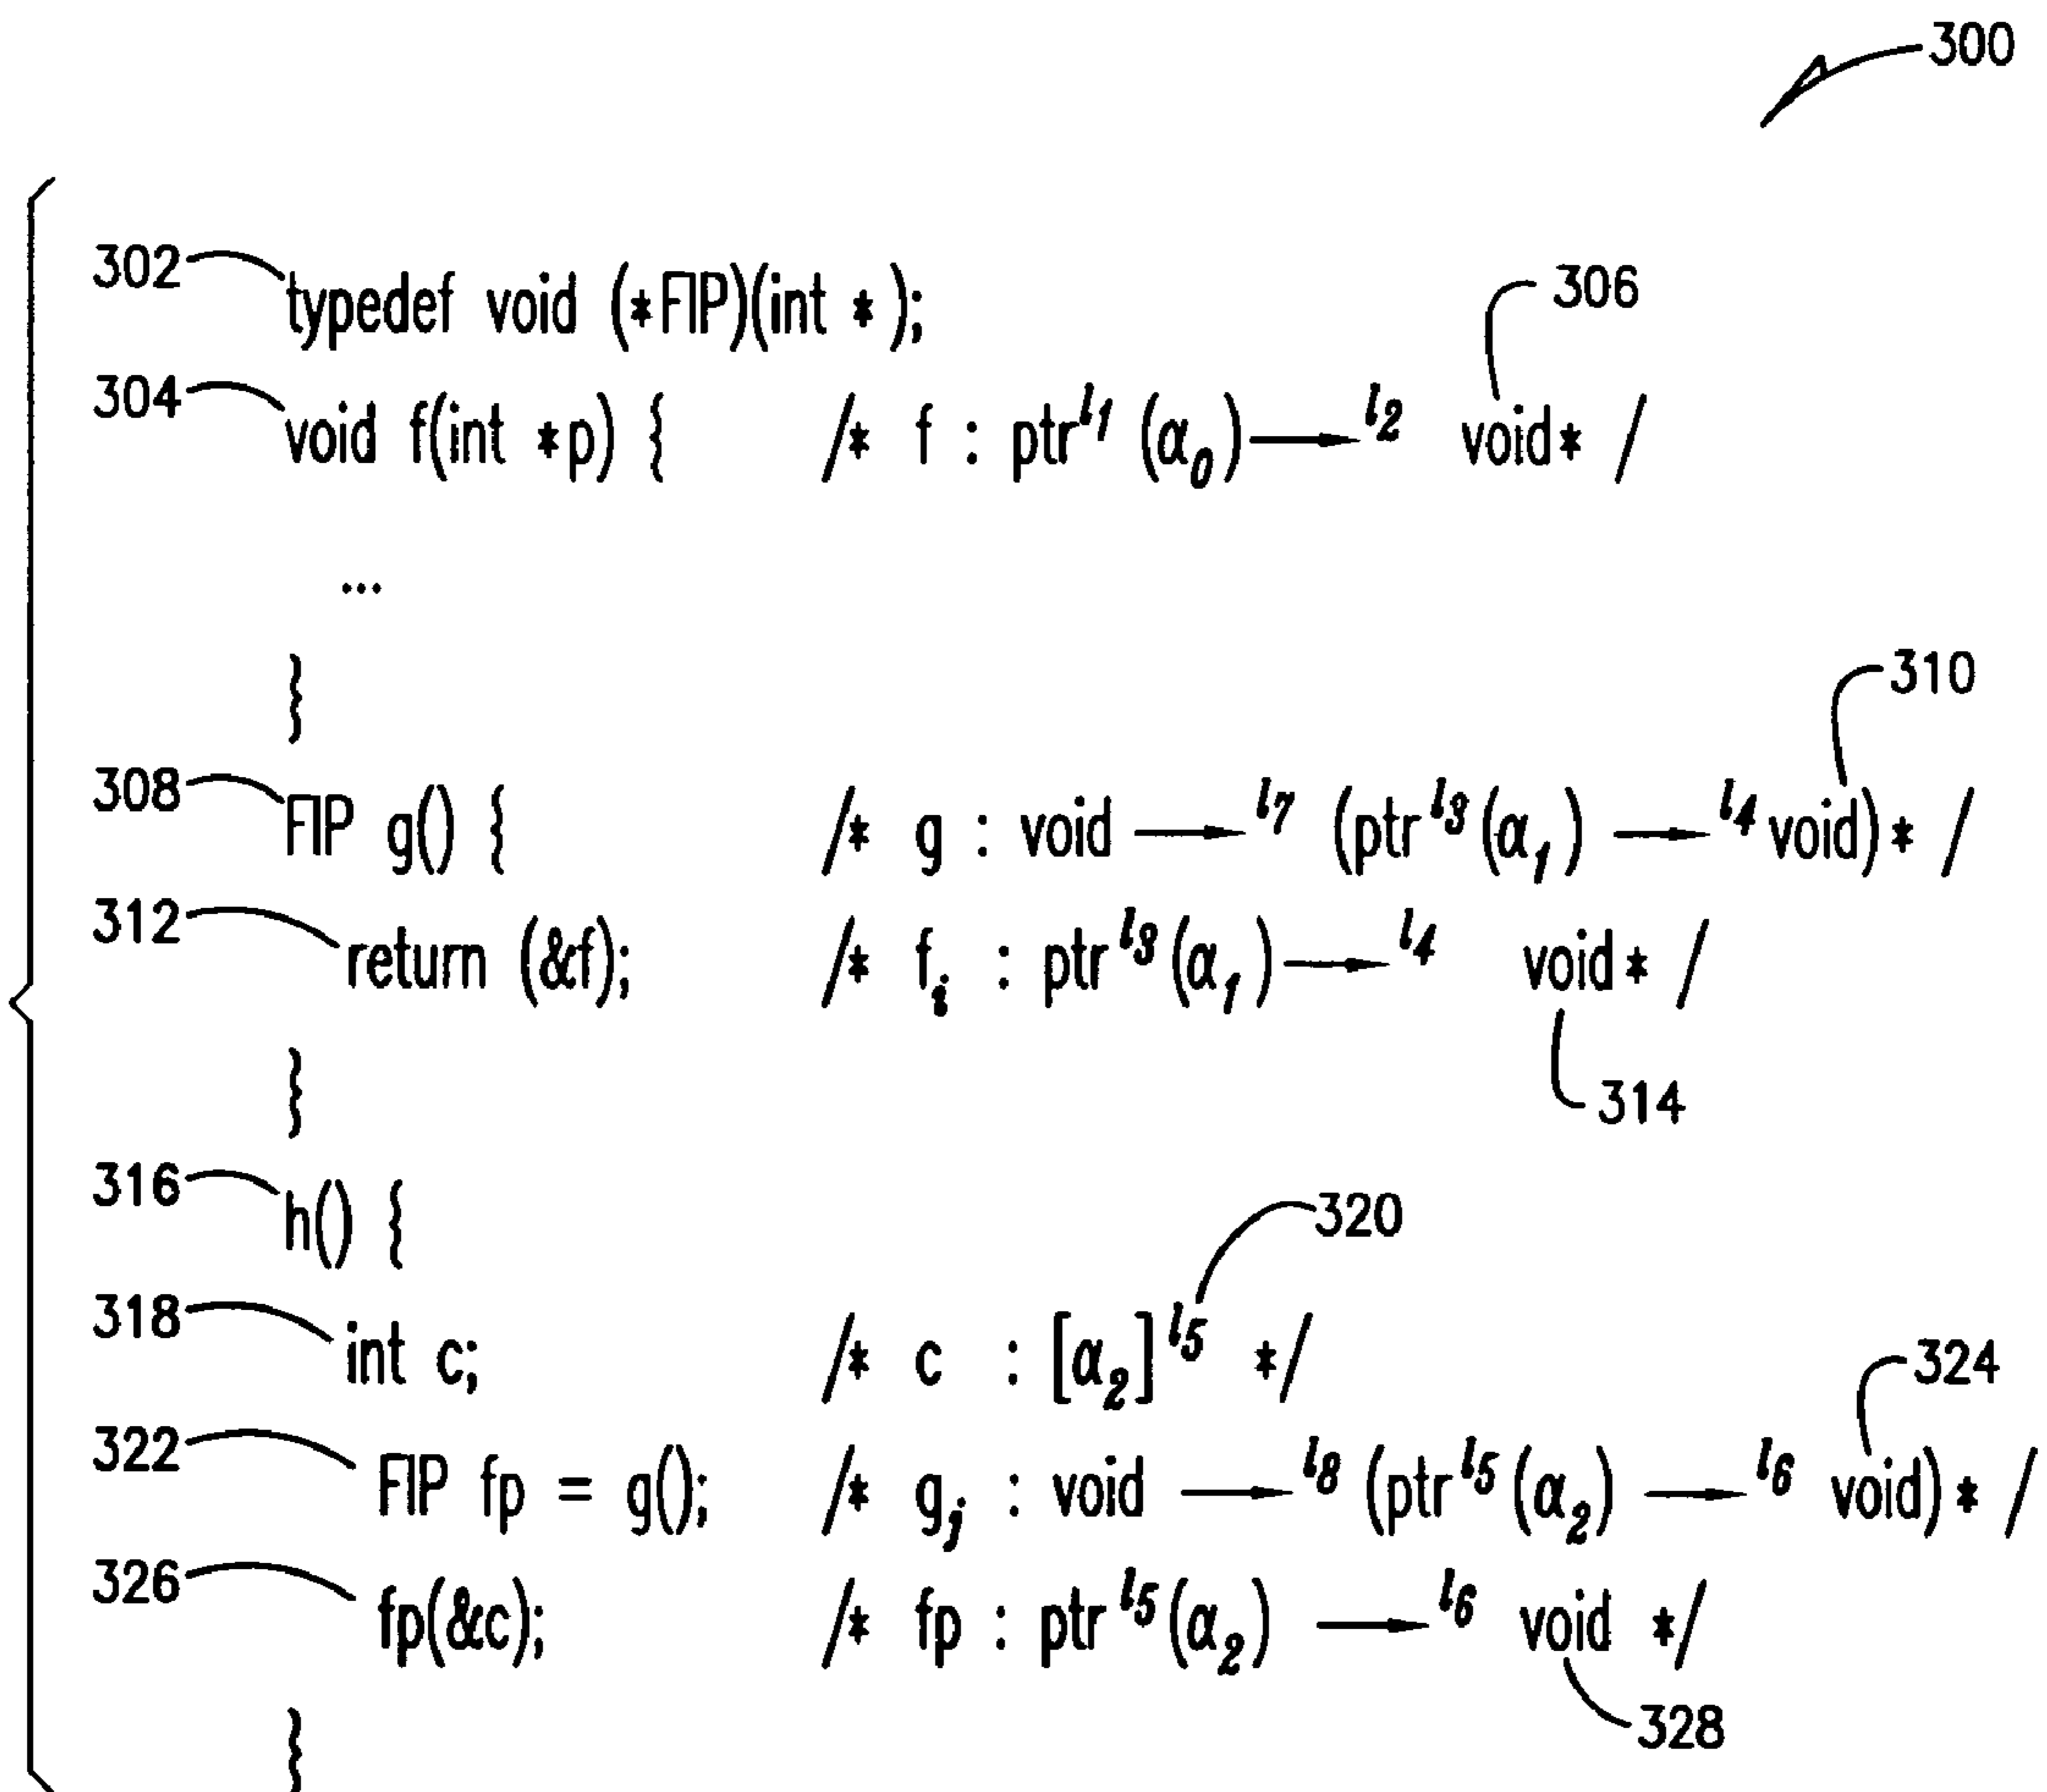 300
302 typedef void (*FIP)(int *);
306
304 void f(int *p) { /* f : ptr^l1 (α0) ⟶ ^l2 void* /
...
}
310
308 FIP g() { /* g : void ⟶ ^l7 (ptr^l3(α1) ⟶ ^l4 void)* /
312 return (&f); /* f_i : ptr^l3(α1) ⟶ ^l4 void* /
314
}
316 h() {
320
318 int c; /* c : [α2]^l5 */
324
322 FIP fp = g(); /* g_j : void ⟶ ^l8 (ptr^l5(α2) ⟶ ^l6 void)* /
326 fp(&c); /* fp : ptr^l5(α2) ⟶ ^l6 void */
328
}